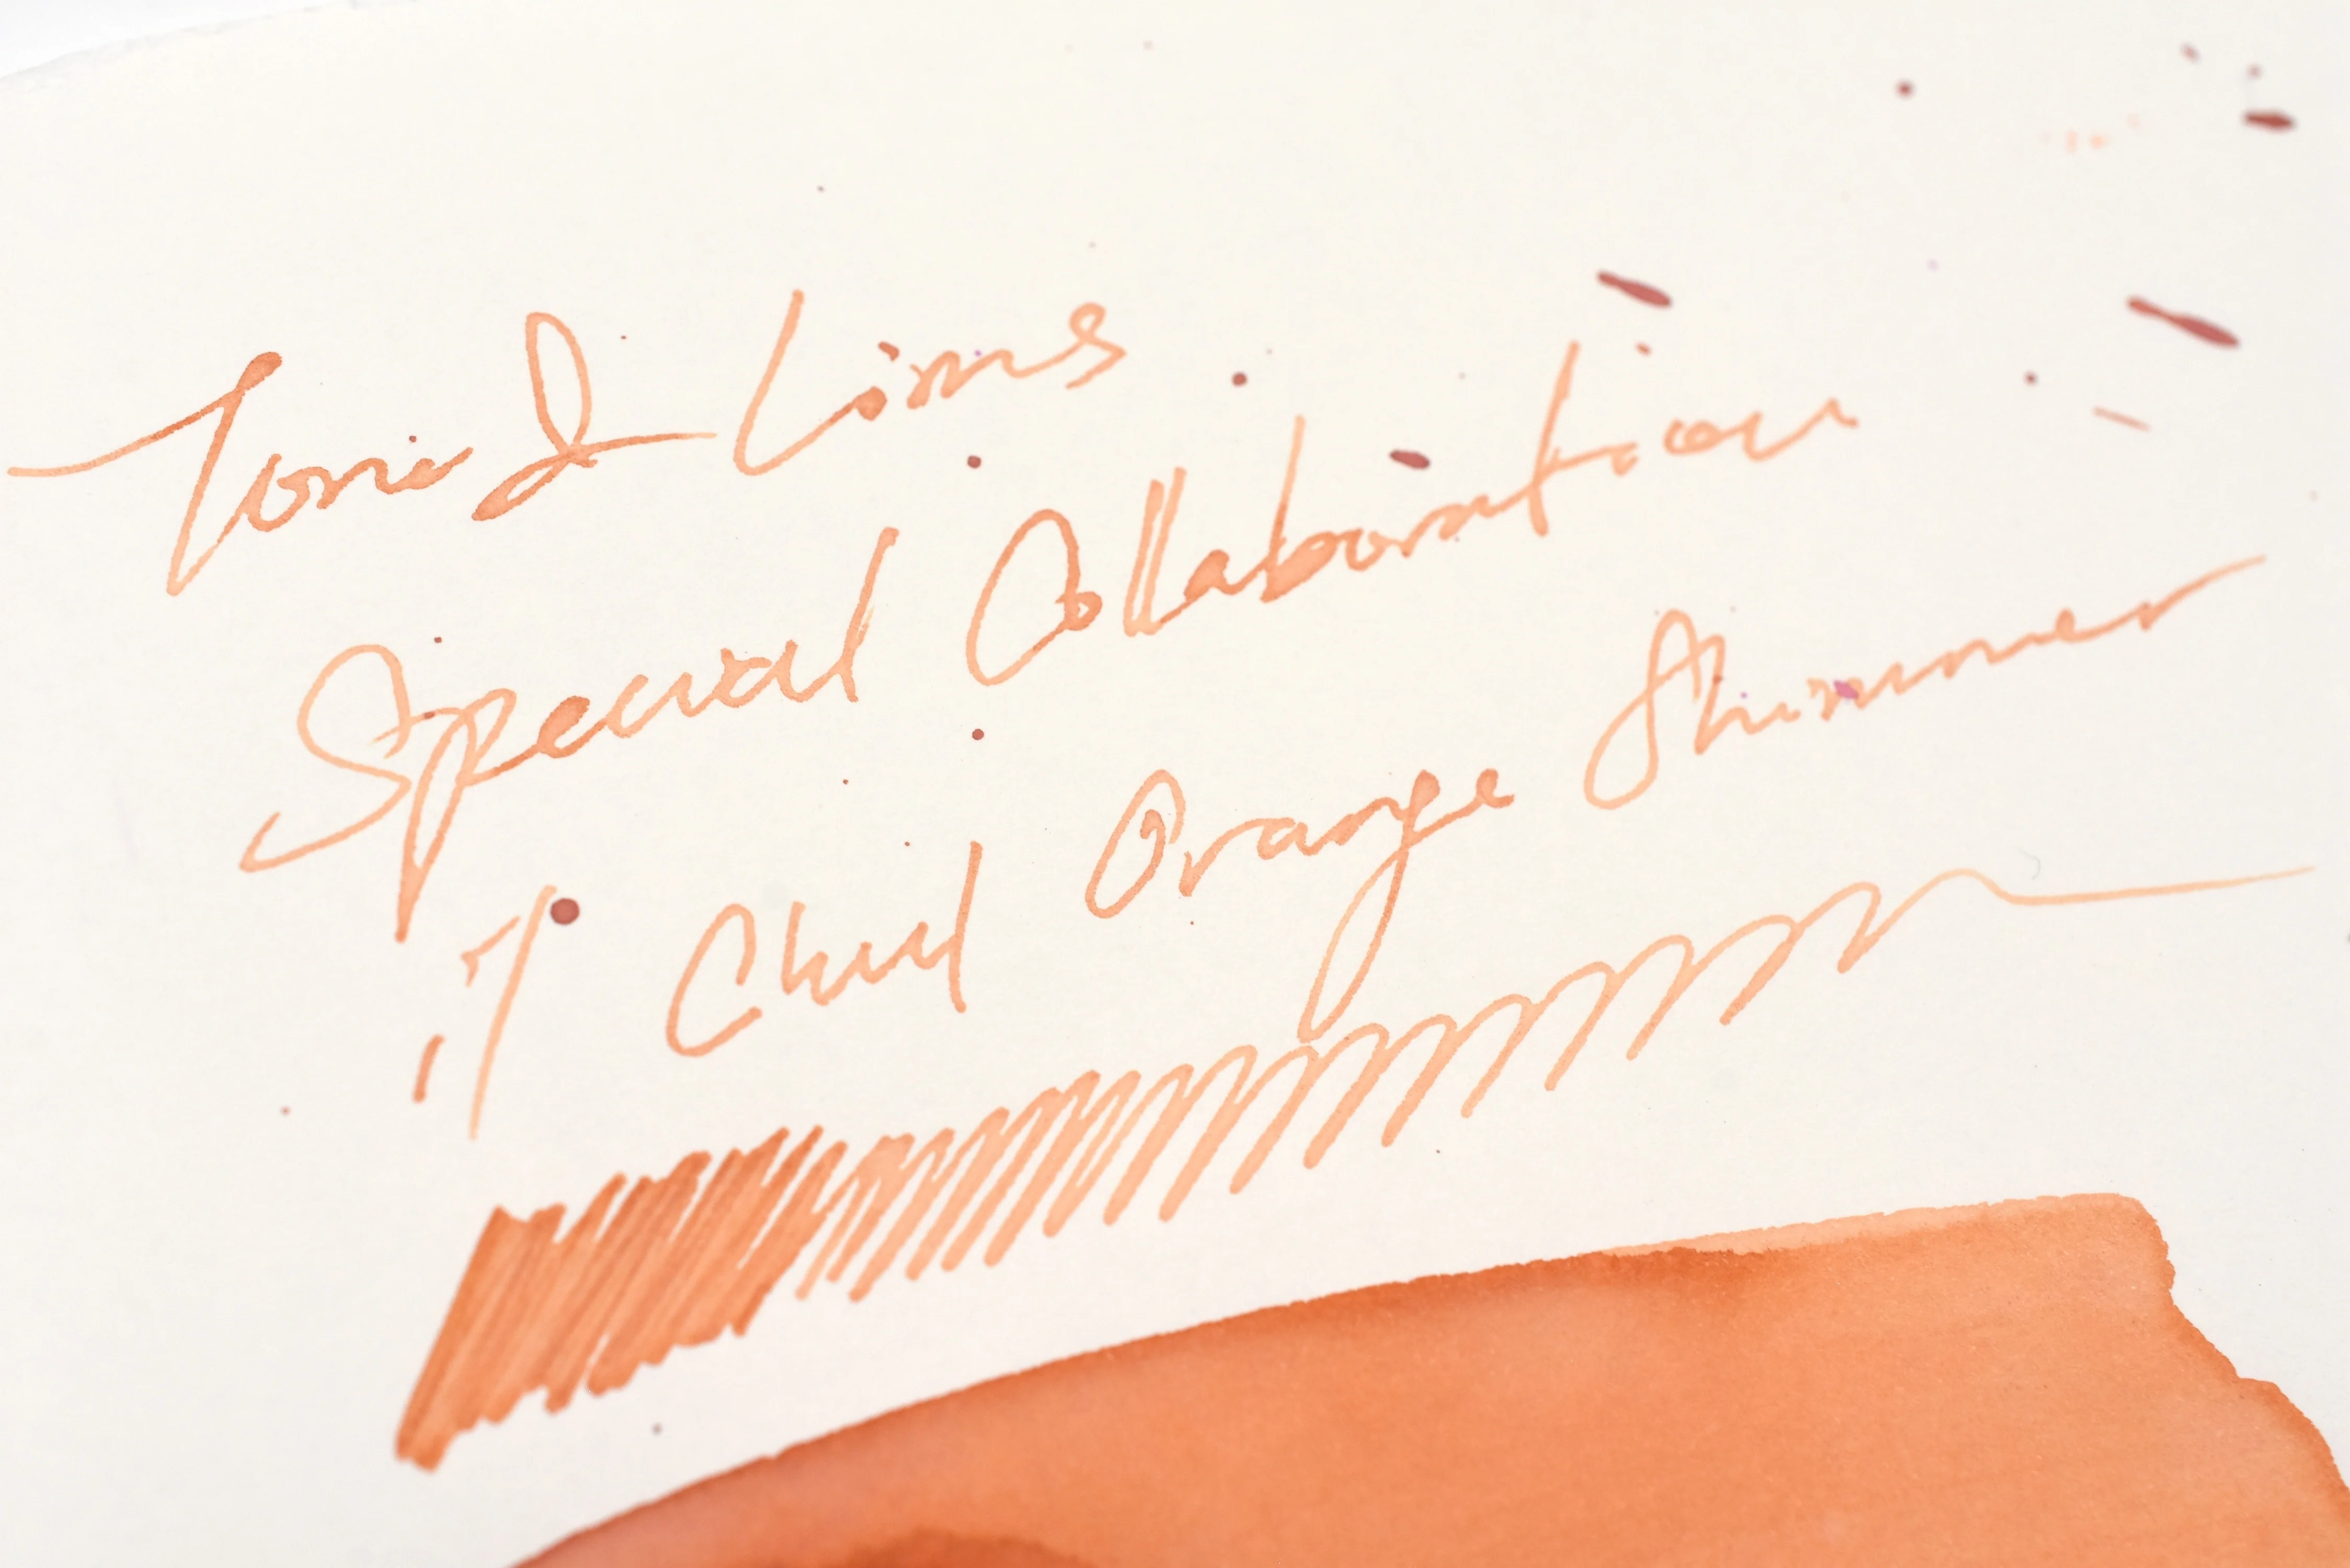 Tono & Lims
Special Collaboration
Orange Shimmer